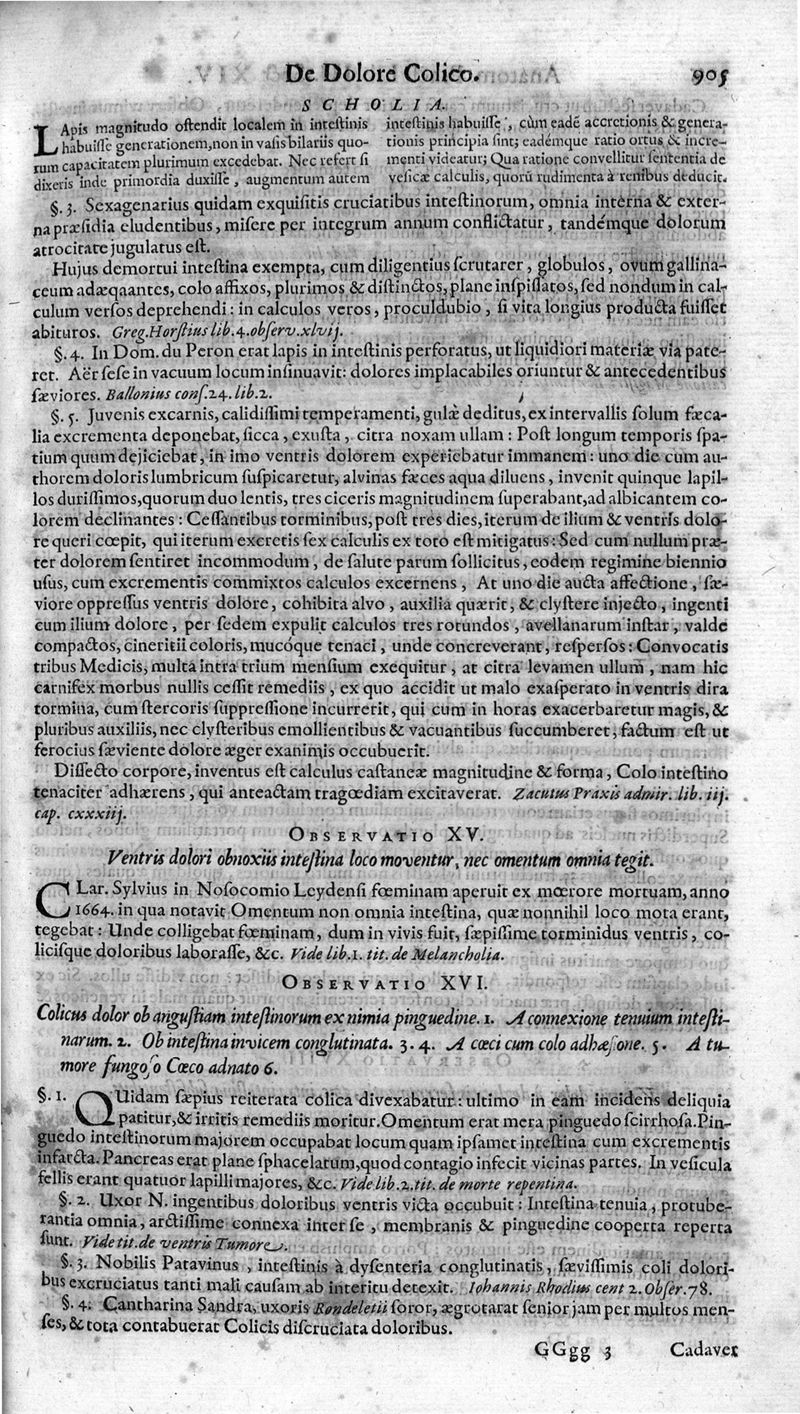 De Dolore Colico.
905
SCHOLIA.
LApis magnitudo ostendit localem in intestinis
habuisse generationem, non in vasis bilariis quo-
rum capacitatem plurimum excedebat. Nec refert si
dixeris inde primordia duxisse, augmentum autem
intestinis habuisse, cùm eadē accretionis & genera-
tionis principia sint; eadémque ratio ortus & incre-
menti videatur; Qua ratione convellitur sententia de
vesicæ calculis, quorū rudimenta à renibus deducit.
§. 3. Sexagenarius quidam exquisitis cruciatibus intestinorum, omnia interna & exter-
na præsidia eludentibus, misere per integrum annum conflictatur, tandémque dolorum
atrocitate jugulatus est.
Hujus demortui intestina exempta, cum diligentius scrutarer, globulos, ovum gallina-
ceum adæqaantes, colo affixos, plurimos & distinctos, plane inspissatos, sed nondum in cal-
culum versos deprehendi: in calculos veros, proculdubio, si vita longius producta fuisset
abituros. Greg. Horstius lib. 4. observ. xlvij.
§. 4. In Dom. du Peron erat lapis in intestinis perforatus, ut liquidiori materiæ via pate-
ret. Aër sese in vacuum locum insinuavit: dolores implacabiles oriuntur & antecedentibus
sæviores. Ballonius cons. 24. lib. 2.
§. 5. Juvenis excarnis, calidissimi temperamenti, gulæ deditus, ex intervallis solum fæca-
lia excrementa deponebat, sicca, exusta, citra noxam ullam: Post longum temporis spa-
tium quum dejiciebat, in imo ventris dolorem experiebatur immanem: uno die cum au-
thorem doloris lumbricum suspicaretur, alvinas fæces aqua diluens, invenit quinque lapil-
los durissimos, quorum duo lentis, tres ciceris magnitudinem superabant, ad albicantem co-
lorem declinantes: Cessantibus torminibus, post tres dies, iterum de ilium & ventris dolo-
re queri cœpit, qui iterum excretis sex calculis ex toto est mitigatus: Sed cum nullum præ-
ter dolorem sentiret incommodum, de salute parum sollicitus, eodem regimine biennio
usus, cum excrementis commixtos calculos excernens, At uno die aucta affectione, sæ-
viore oppressus ventris dolore, cohibita alvo, auxilia quærit, & clystere injecto, ingenti
cum ilium dolore, per sedem expulit calculos tres rotundos, avellanarum instar, valde
compactos, cineritii coloris, mucóque tenaci, unde concreverant, respersos: Convocatis
tribus Medicis, multa intra trium mensium exequitur, at citra levamen ullum, nam hic
carnifex morbus nullis cessit remediis, ex quo accidit ut malo exasperato in ventris dira
tormina, cum stercoris suppressione incurrerit, qui cum in horas exacerbaretur magis, &
pluribus auxiliis, nec clysteribus emollientibus & vacuantibus succumberet, factum est ut
ferocius sæviente dolore æger exanimis occubuerit.
Dissecto corpore, inventus est calculus castaneæ magnitudine & forma, Colo intestino
tenaciter adhærens, qui anteactam tragœdiam excitaverat. Zacutus Praxis admir. lib. iij.
cap. cxxxiij.
OBSERVATIO XV.
Ventris dolori obnoxiis intestina loco moventur, nec omentum omnia tegit.
CLar. Sylvius in Nosocomio Leydensi fœminam aperuit ex mœrore mortuam, anno
1664. in qua notavit Omentum non omnia intestina, quæ nonnihil loco mota erant,
tegebat: Unde colligebat fœminam, dum in vivis fuit, sæpissime torminidus ventris, co-
licisque doloribus laborasse, &c. Vide lib. 1. tit. de Melancholia.
OBSERVATIO XVI.
Colicus dolor ob angustiam intestinorum ex nimia pinguedine. 1. A connexione tenuium intesti-
narum. 2. Ob intestina invicem conglutinata. 3. 4. A cœci cum colo adhæsione. 5. A tu-
more fungoso Cœco adnato 6.
§. 1. QUidam sæpius reiterata colica divexabatur: ultimo in eam incidens deliquia
patitur, & irritis remediis moritur. Omentum erat mera pinguedo scirrhosa. Pin-
guedo intestinorum majorem occupabat locum quam ipsamet intestina cum excrementis
infarcta. Pancreas erat plane sphacelatum, quod contagio infecit vicinas partes. In vesicula
fellis erant quatuor lapilli majores, &c. Vide lib. 2. tit. de morte repentina.
§. 2. Uxor N. ingentibus doloribus ventris victa occubuit: Intestina tenuia, protube-
rantia omnia, arctissime connexa inter se, membranis & pinguedine cooperta reperta
sunt. Vide tit. de ventris Tumore.
§. 3. Nobilis Patavinus, intestinis à dysenteria conglutinatis, sævissimis coli dolori-
bus excruciatus tanti mali causam ab interitu detexit. Iohannis Rhodius cent 2. Obser. 78.
§. 4. Cantharina Sandra, uxoris Rondeletii soror, ægrotarat senior jam per multos men-
ses, & tota contabuerat Colicis discruciata doloribus.
GGgg 3
Cadavex